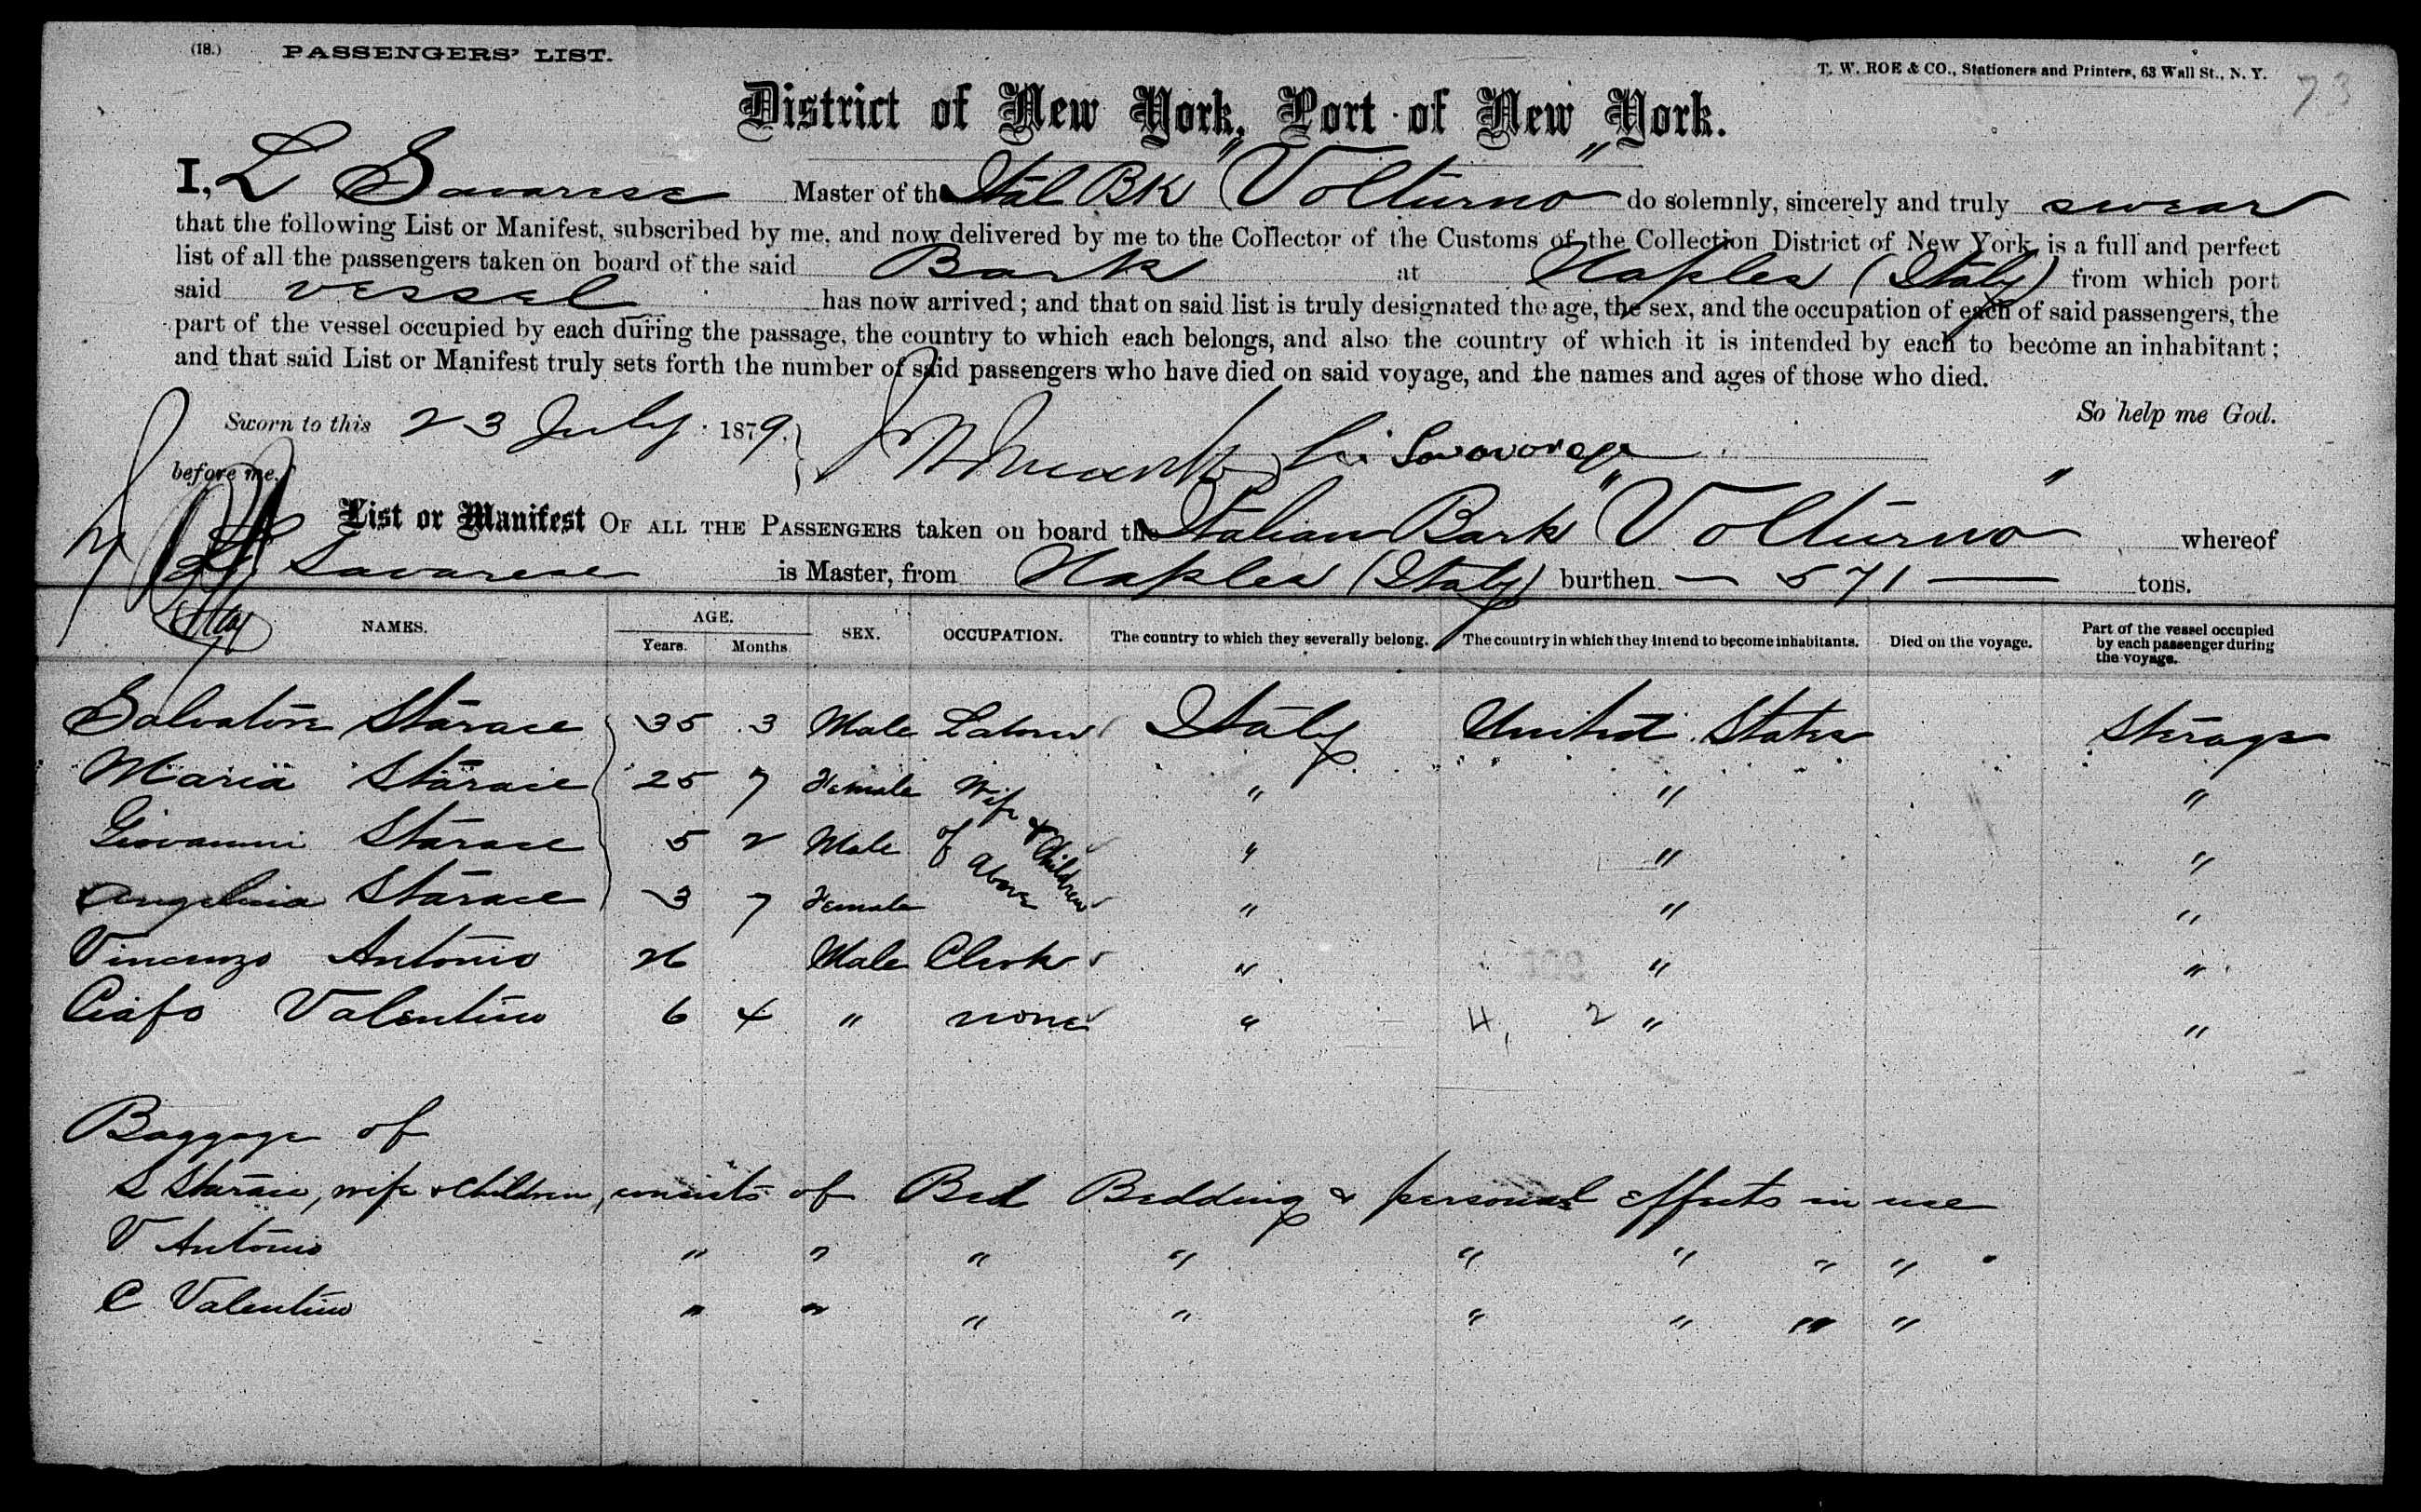 (18.) PASSENGERS' LIST.
T. W. ROE & CO., Stationers and Printers, 63 Wall St., N. Y. 73
District of New York, Port of New York.
I, L Savarese Master of the Ital Bk "Volturno" do solemnly, sincerely and truly swear
that the following List or Manifest, subscribed by me, and now delivered by me to the Collector of the Customs of the Collection District of New York, is a full and perfect
list of all the passengers taken on board of the said Bark at Naples (Italy) from which port
said vessel has now arrived; and that on said list is truly designated the age, the sex, and the occupation of each of said passengers, the
part of the vessel occupied by each during the passage, the country to which each belongs, and also the country of which it is intended by each to become an inhabitant;
and that said List or Manifest truly sets forth the number of said passengers who have died on said voyage, and the names and ages of those who died.
So help me God.
Sworn to this 23 July 1879.
before me.
List or Manifest OF ALL THE PASSENGERS taken on board the Italian Bark "Volturno" whereof
L Savarese is Master, from Naples (Italy) burthen — 571 — tons.
NAMES. AGE. Years. Months. SEX. OCCUPATION. The country to which they severally belong. The country in which they intend to become inhabitants. Died on the voyage. Part of the vessel occupied by each passenger during the voyage.
Salvatore Starace 35 3 Male Labour Italy United States Sterage
Maria Starace 25 7 Female Wife & Children " " "
Giovanni Starace 5 2 Male of Above " " "
Angelina Starace 3 7 Female " " "
Vincenzo Antonio 26 Male Clerk " " "
Ciafo Valentino 6 4 " none " 4, 2 " "
Baggage of
S Starace, wife & Children, consists of Bed Bedding & personal effects in use
V Antonio " " " " " " " "
C Valentino " " " " " " " "